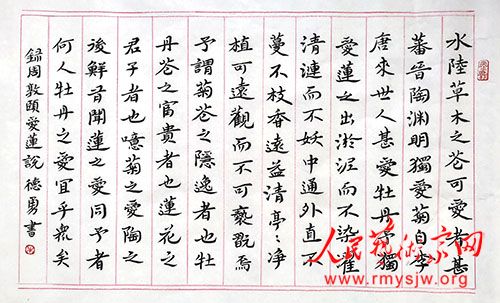 水陸草木之花可愛者甚
蕃晉陶渊明獨愛菊自李
唐來世人甚愛牡丹予獨
愛蓮之出淤泥而不染濯
清漣而不妖中通外直不
蔓不枝香遠益清亭〻净
植可遠觀而不可褻翫焉
予謂菊花之隱逸者也牡
丹花之富貴者也蓮花之
君子者也噫菊之愛陶之
後鮮有聞蓮之愛同予者
何人牡丹之愛宜乎衆矣
錄周敦頤愛蓮說 德勇書
人民藝術家网
www.rmysjw.org